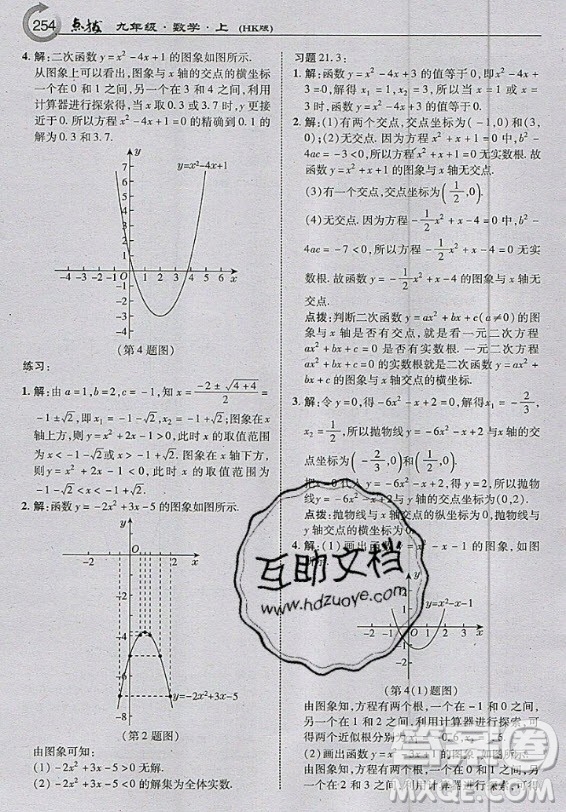 254 点拨 九年级·数学·上 (HK版)
4. 解:二次函数 y=x²-4x+1 的图象如图所示.
从图象上可以看出,图象与 x 轴的交点的横坐标
一个在 0 和 1 之间,另一个在 3 和 4 之间,利用
计算器进行探索得,当 x 取 0.3 或 3.7 时,y 更接
近于 0. 所以方程 x²-4x+1=0 的精确到 0.1 的
解为 0.3 和 3.7.
y=x²-4x+1
(第 4 题图)
练习:
1. 解:由 a=1,b=2,c=-1,知 x=(-2±√(4+4))/2=
-1±√2,即 x₁=-1-√2,x₂=-1+√2. 图象在 x
轴上方,则 y=x²+2x-1>0,此时 x 的取值范围
为 x<-1-√2 或 x>-1+√2. 图象在 x 轴下方,
则 y=x²+2x-1<0,此时 x 的取值范围为
-1-√2<x<-1+√2.
2. 解:函数 y=-2x²+3x-5 的图象如图所示.
y=-2x²+3x-5
(第 2 题图)
由图象可知:
(1) -2x²+3x-5>0 无解.
(2) -2x²+3x-5<0 的解集为全体实数.
习题 21.3:
1. 解:函数 y=x²-4x+3 的值等于 0. 当 x=1 或 x=
3 时,函数 y=x²-4x+3 的值等于 0.
2. 解:(1)有两个交点,交点坐标为(-1,0)和(3,
0);(2)无交点. 因为方程
4ac=-3<0,所以方程无实数根. 故
函数
的图象与 x 轴无交点.
(3)有一个交点,交点坐标为(1/2,0).
(4)无交点. 因为方程 -1/2x²+x-4=0 中,b²-
4ac=-7<0,所以方程无实数根. 故函数
y=-1/2x²+x-4 的图象与 x 轴无交点.
点拨:判断二次函数 y=ax²+bx+c(a≠0)的图象
与 x 轴是否有交点,就是看一元二次方程
ax²+bx+c=0 是否有实数根. 一元二次方程
ax²+bx+c=0 的实数根就是二次函数 y=ax²+
bx+c 的图象与 x 轴的交点的横坐标.
3. 解:令 y=0,得 -6x²-x+2=0,解得 x₁=-2/3,
x₂=1/2. 所以抛物线 y=-6x²-x+2 与 x 轴的交
点坐标为(-2/3,0)和(1/2,0).
把 x=0 代入 y=-6x²-x+2,得 y=2,所以抛物
线 y=-6x²-x+2 与 y 轴的交点坐标为(0,2).
点拨:抛物线与 x 轴的交点的纵坐标为 0,抛物线
与 y 轴的交点的横坐标为 0.
4. 解:(1)画出函数
-x-1 的图象,如图
y=x²-x-1
(第 4(1)题图)
由图象知,方程有两个根,一个在 -1 和 0 之间,
另一个在 1 和 2 之间,利用计算器进行探索,可
得两个近似根分别
(2)画出函数
的图象,如图.
由图象知,方程有两个根,一个在 0 和 1 之间,
另一个在 8 和 9 之间,利用计算器进行探索,可
互助文档
www.hdzuoye.com